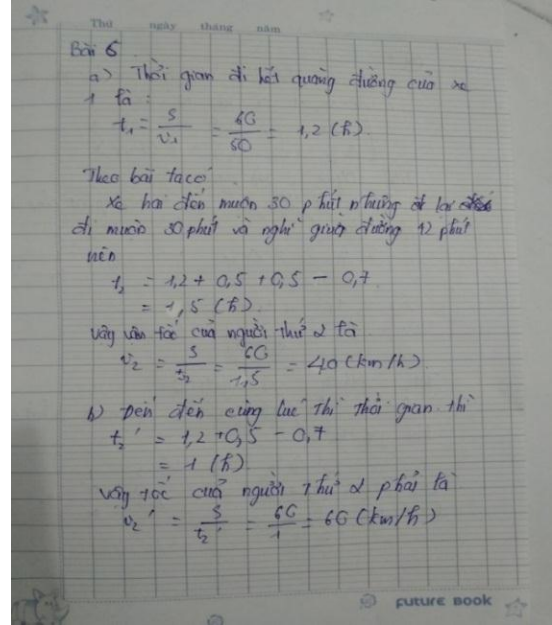 Thứ ngày tháng năm
Bài 6
a) Thời gian đi hết quãng đường của xe
1 là :
t₁ = s/v₁ = 60/50 = 1,2 (h).
Theo bài ta có
Xe hai đến muộn 30 phút nhưng lại
đi muộn 30 phút và nghỉ giữa đường 42 phút
nên
t₂ = 1,2 + 0,5 + 0,5 - 0,7
= 1,5 (h)
Vậy vận tốc của người thứ 2 là
v₂ = s/t₂ = 60/1,5 = 40 (km/h)
b) Để đến cùng lúc thì thời gian thì
t₂' = 1,2 + 0,5 - 0,7
= 1 (h)
vận tốc của người thứ 2 phải là
v₂' = s/t₂' = 60/1 = 60 (km/h)
FUTURE BOOK